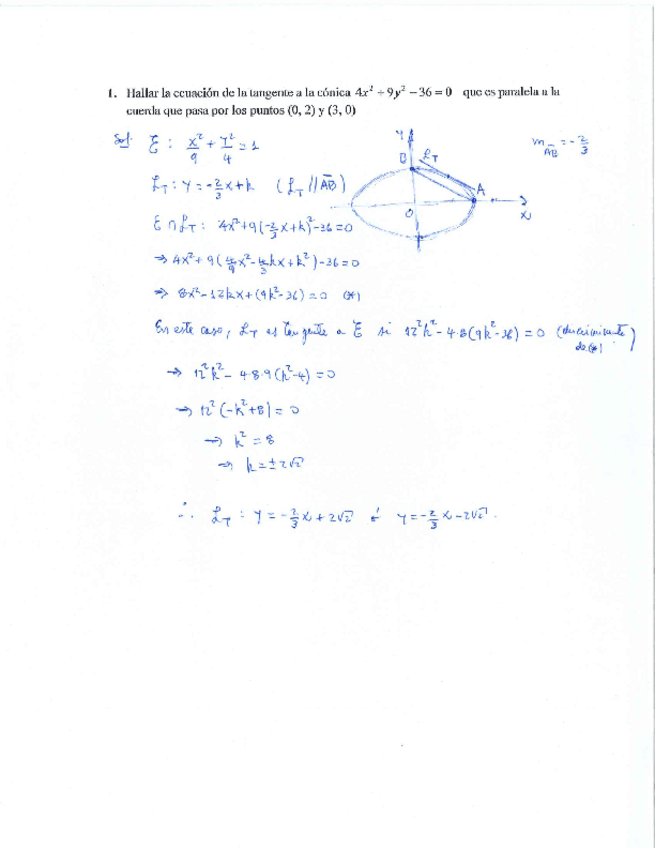 1. Hallar la ecuación de la tangente a la cónica 4x² + 9y² − 36 = 0 que es paralela a la
cuerda que pasa por los puntos (0, 2) y (3, 0)
Sol. E : x²/9 + y²/4 = 1
Y
B
L_T
A
O
X
m_AB = -2/3
L_T : y = -2/3 x + k (L_T // AB)
E ∩ L_T : 4x² + 9(-2/3 x + k)² - 36 = 0
⇒ 4x² + 9(4/9 x² - 4/3 kx + k²) - 36 = 0
⇒ 8x² - 12kx + (9k² - 36) = 0 (*)
En este caso, L_T es tangente a E si 12²k² - 4·8(9k² - 36) = 0 (discriminante
de (*))
⇒ 12²k² - 4·8·9(k² - 4) = 0
⇒ 12²(-k² + 8) = 0
⇒ k² = 8
⇒ k = ±2√2
∴ L_T : y = -2/3 x + 2√2 ó y = -2/3 x - 2√2.